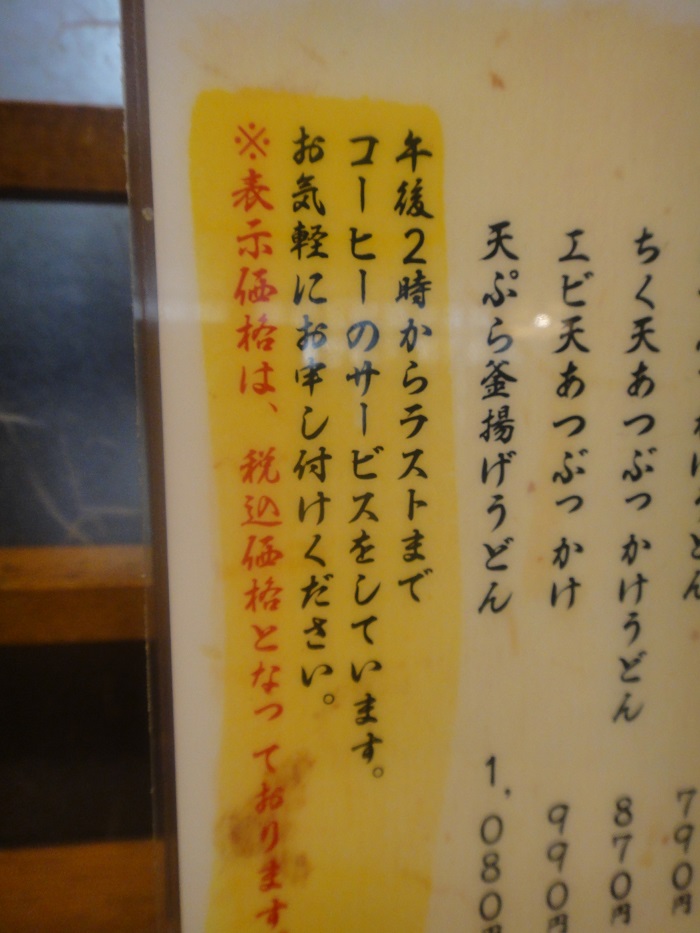 790円
ちく天あつぶっかけうどん
870円
エビ天あつぶっかけ
990円
天ぷら釜揚げうどん
1,080円
午後2時からラストまで
コーヒーのサービスをしています。
お気軽にお申し付けください。
※表示価格は、税込価格となっております